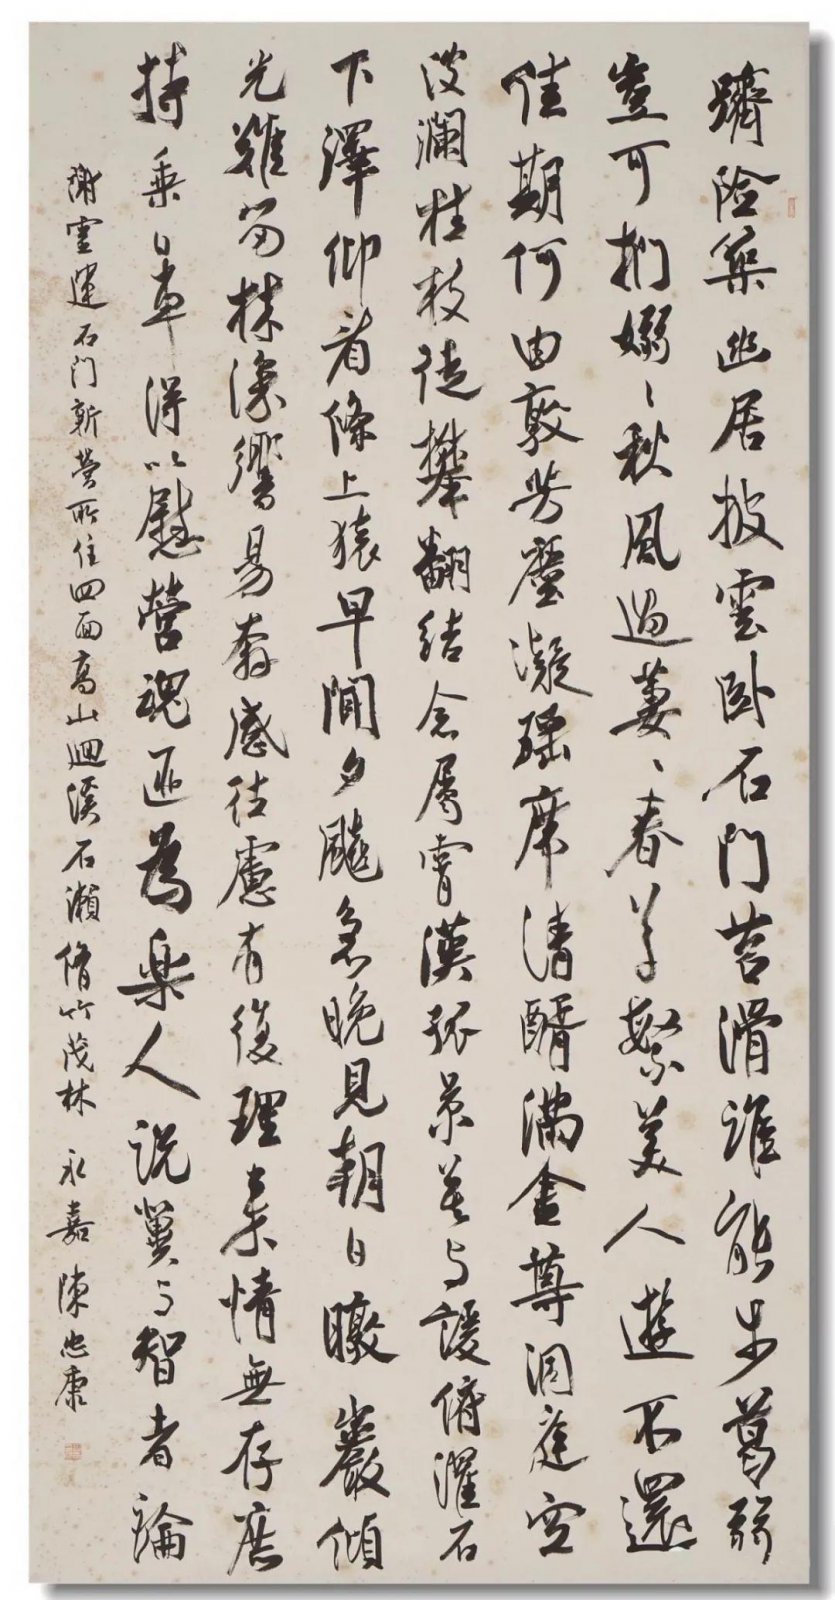 躋險築幽居披雲卧石門苔滑誰能步葛弱
豈可捫嫋〻秋風過萋〻春草繁美人遊不還
佳期何由敦芳塵凝瑶席清醑滿金尊洞庭空
波瀾桂枝徒攀翻結念屬霄漢孤景莫与諼俯濯石
下潭仰看條上猿早聞夕飈急晚見朝日暾巖傾
光難留林深響易奔感往慮有復理来情無存庶
持乘日車得以慰營魂匪為衆人说冀与智者論
謝霊運石门新营所住四面高山迴溪石瀨脩竹茂林 永嘉陳忠康